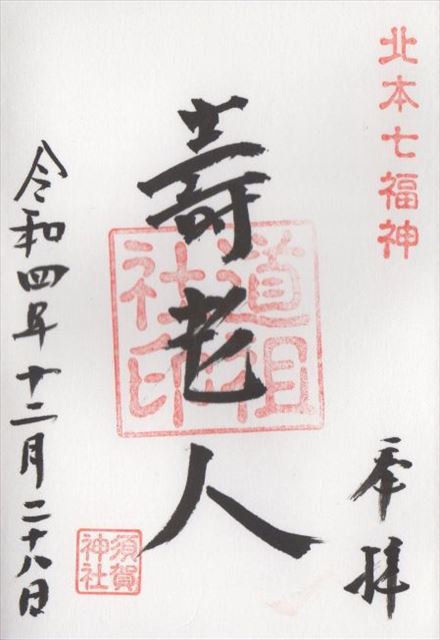 北本七福神
奉拝
壽老人
道祖社印
須賀神社
令和四年十二月二十八日